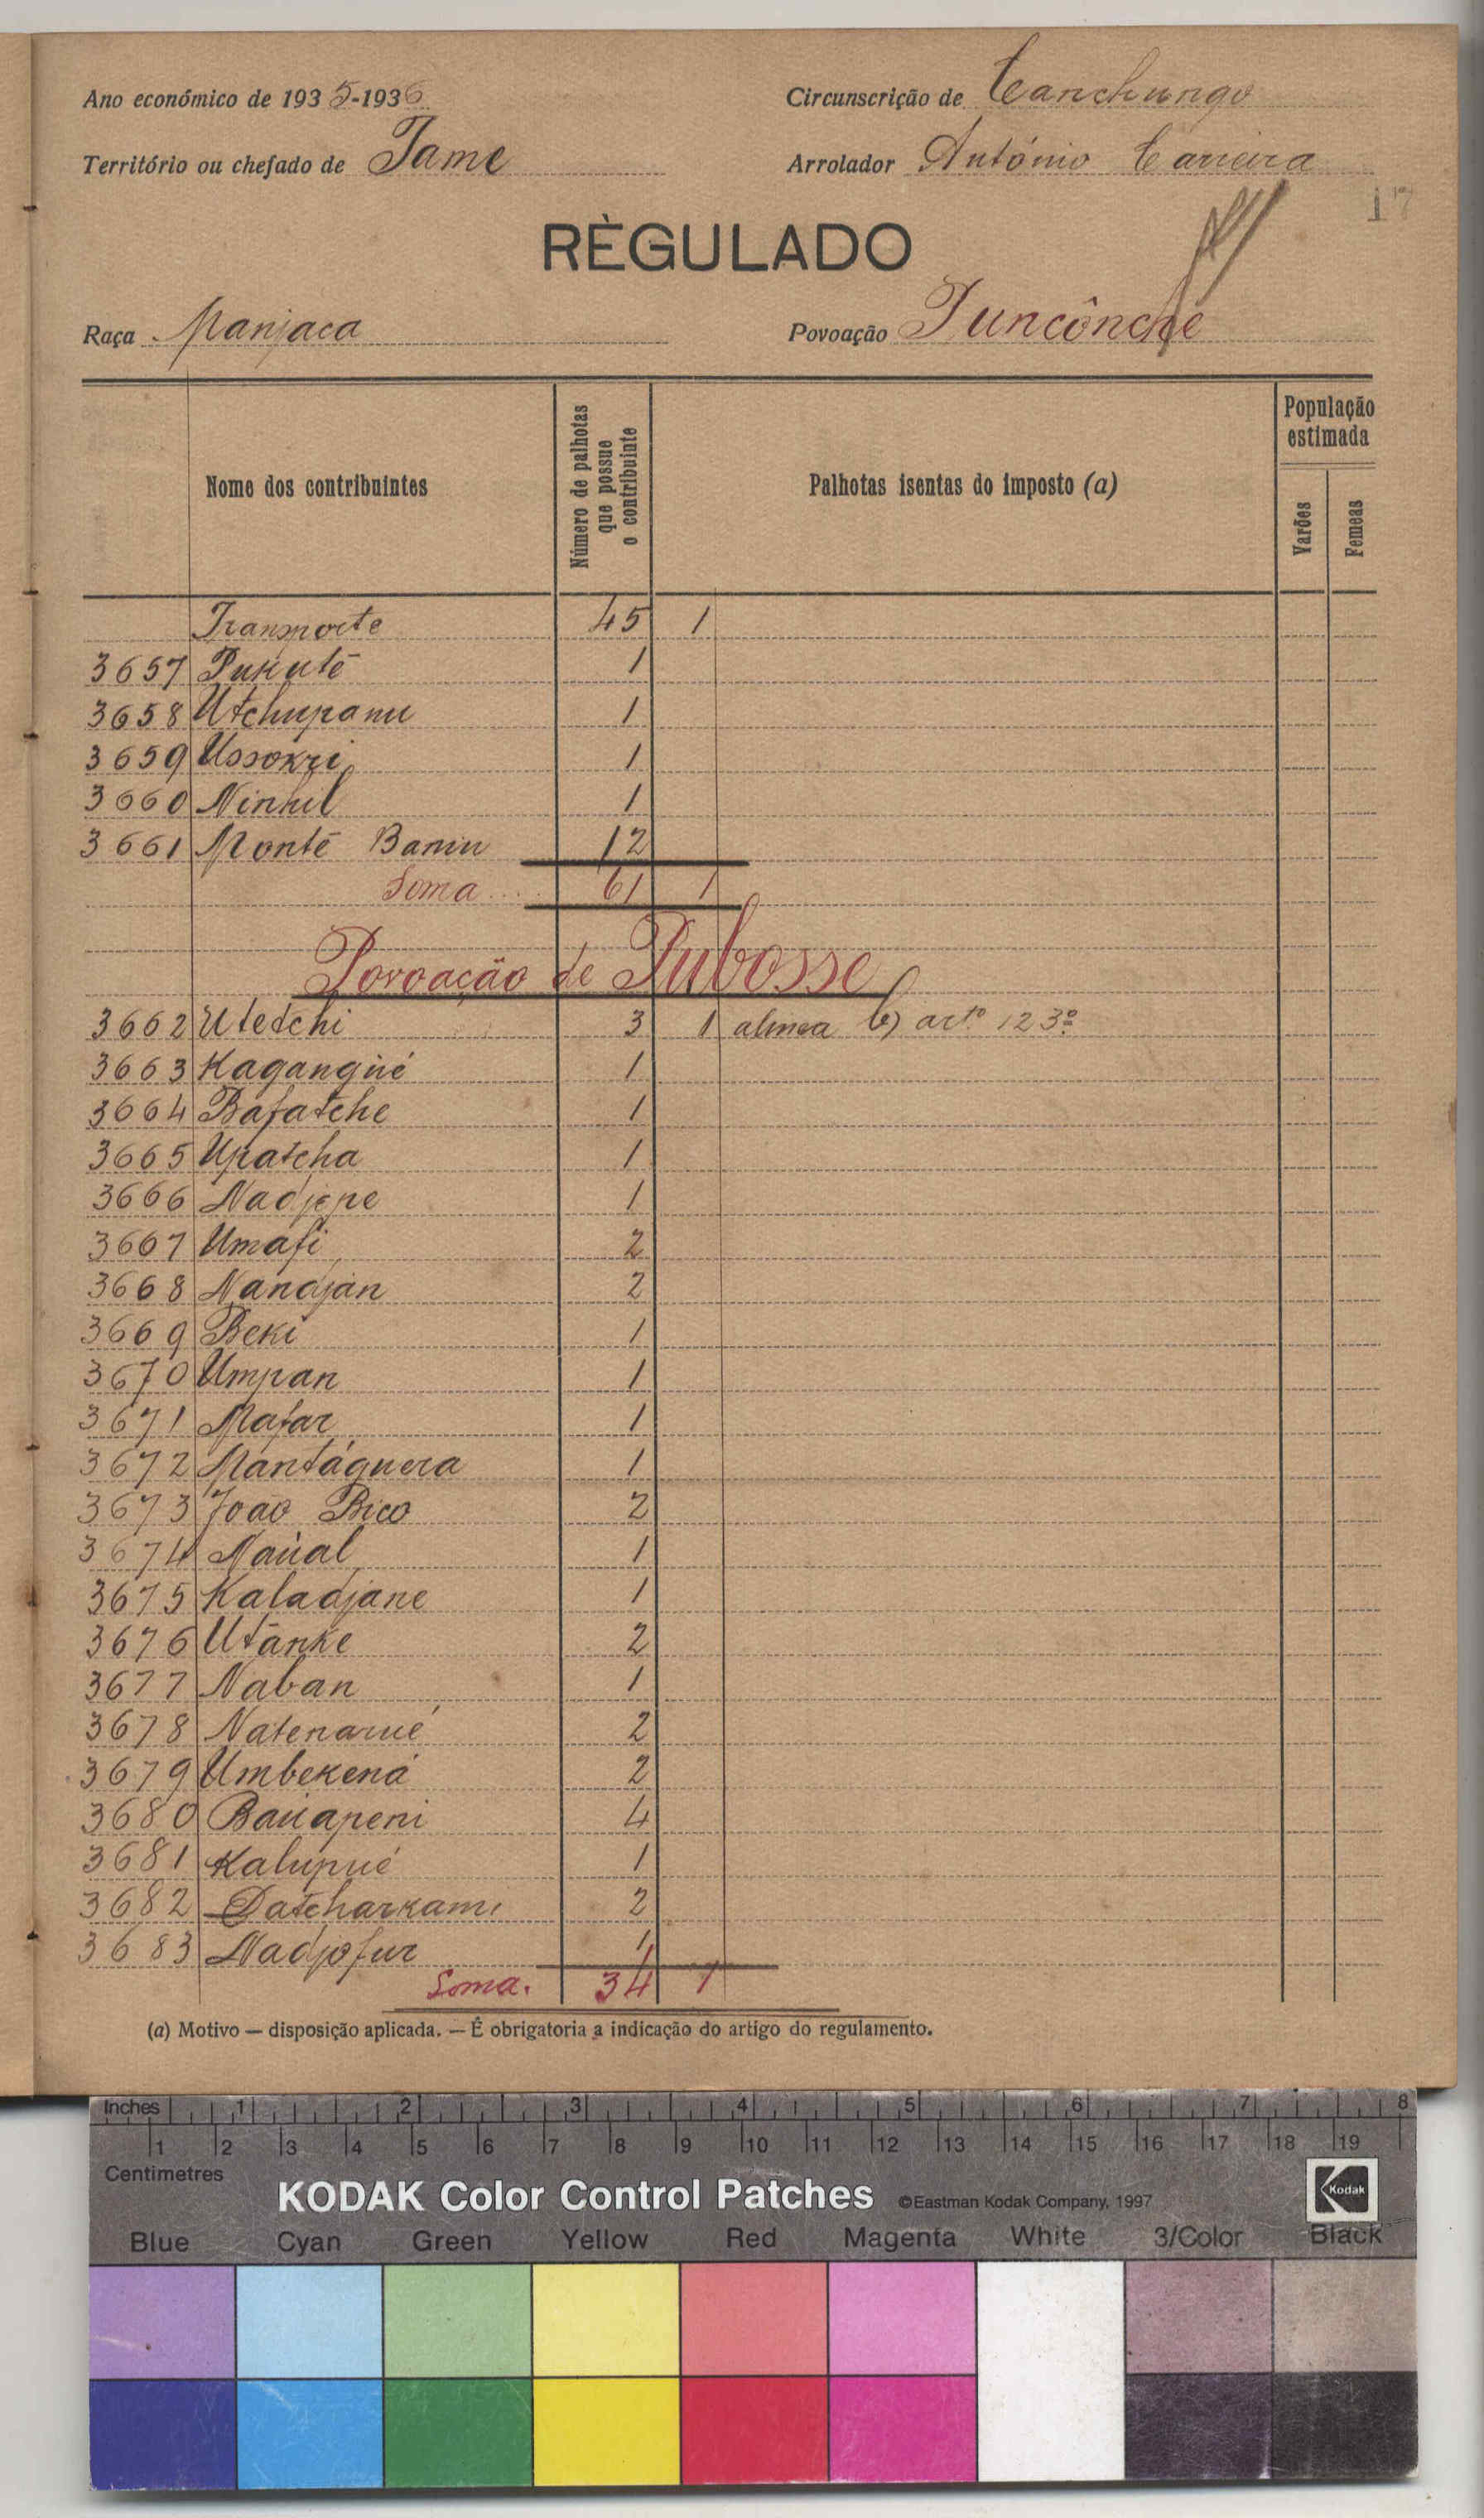 Ano económico de 1935-1936
Circunscrição de Canchungo
Território ou chefado de Tame
Arrolador António Carreira
17
RÈGULADO
Raça Manjaca
Povoação Tuncônche
Nome dos contribuintes
Número de palhotas que possue o contribuinte
Palhotas isentas do imposto (a)
População estimada
Varões
Femeas
Transporte 45 1
3657 Pukutê 1
3658 Utchupanu 1
3659 Ussokri 1
3660 Ninhil 1
3661 Montê Baniu 12
Soma 61 1
Povoação de Pubosse
3662 Utetchi 3 1 alinea b) artº 123º
3663 Kagangüé 1
3664 Bafatche 1
3665 Upatcha 1
3666 Nadjope 1
3667 Umafi 2
3668 Nandjan 2
3669 Beki 1
3670 Umpan 1
3671 Mafar 1
3672 Mantáguera 1
3673 João Bico 2
3674 Naúal 1
3675 Kaladjane 1
3676 Utanke 2
3677 Naban 1
3678 Natenarué 2
3679 Umbekená 2
3680 Bauapeni 4
3681 Kalupué 1
3682 Datcharkami 2
3683 Nadjofur 1
Soma. 34 1
(a) Motivo — disposição aplicada. — É obrigatoria a indicação do artigo do regulamento.
Inches 1 2 3 4 5 6 7 8
1 2 3 4 5 6 7 8 9 10 11 12 13 14 15 16 17 18 19
Centimetres
KODAK Color Control Patches ©Eastman Kodak Company, 1997 Kodak
Blue Cyan Green Yellow Red Magenta White 3/Color Black